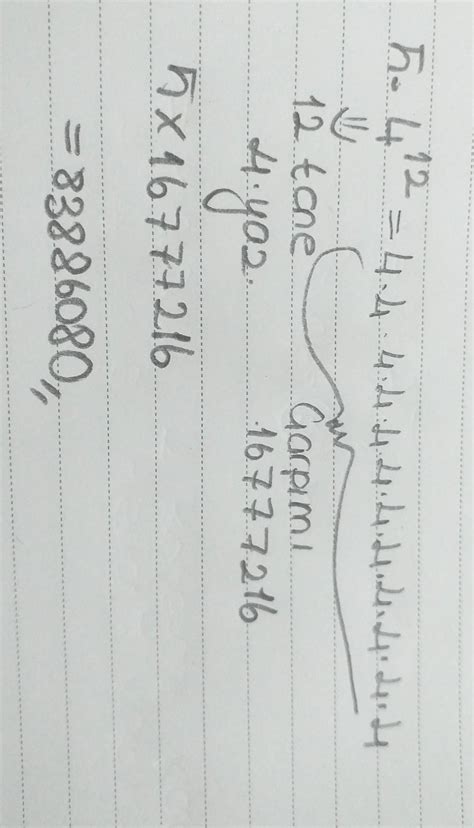 5·4¹² = 4.4.4.4.4.4.4.4.4.4.4.4
⇓
12 tane Çarpımı
4.yaz. 16777216
5x16777216
=83886080,,